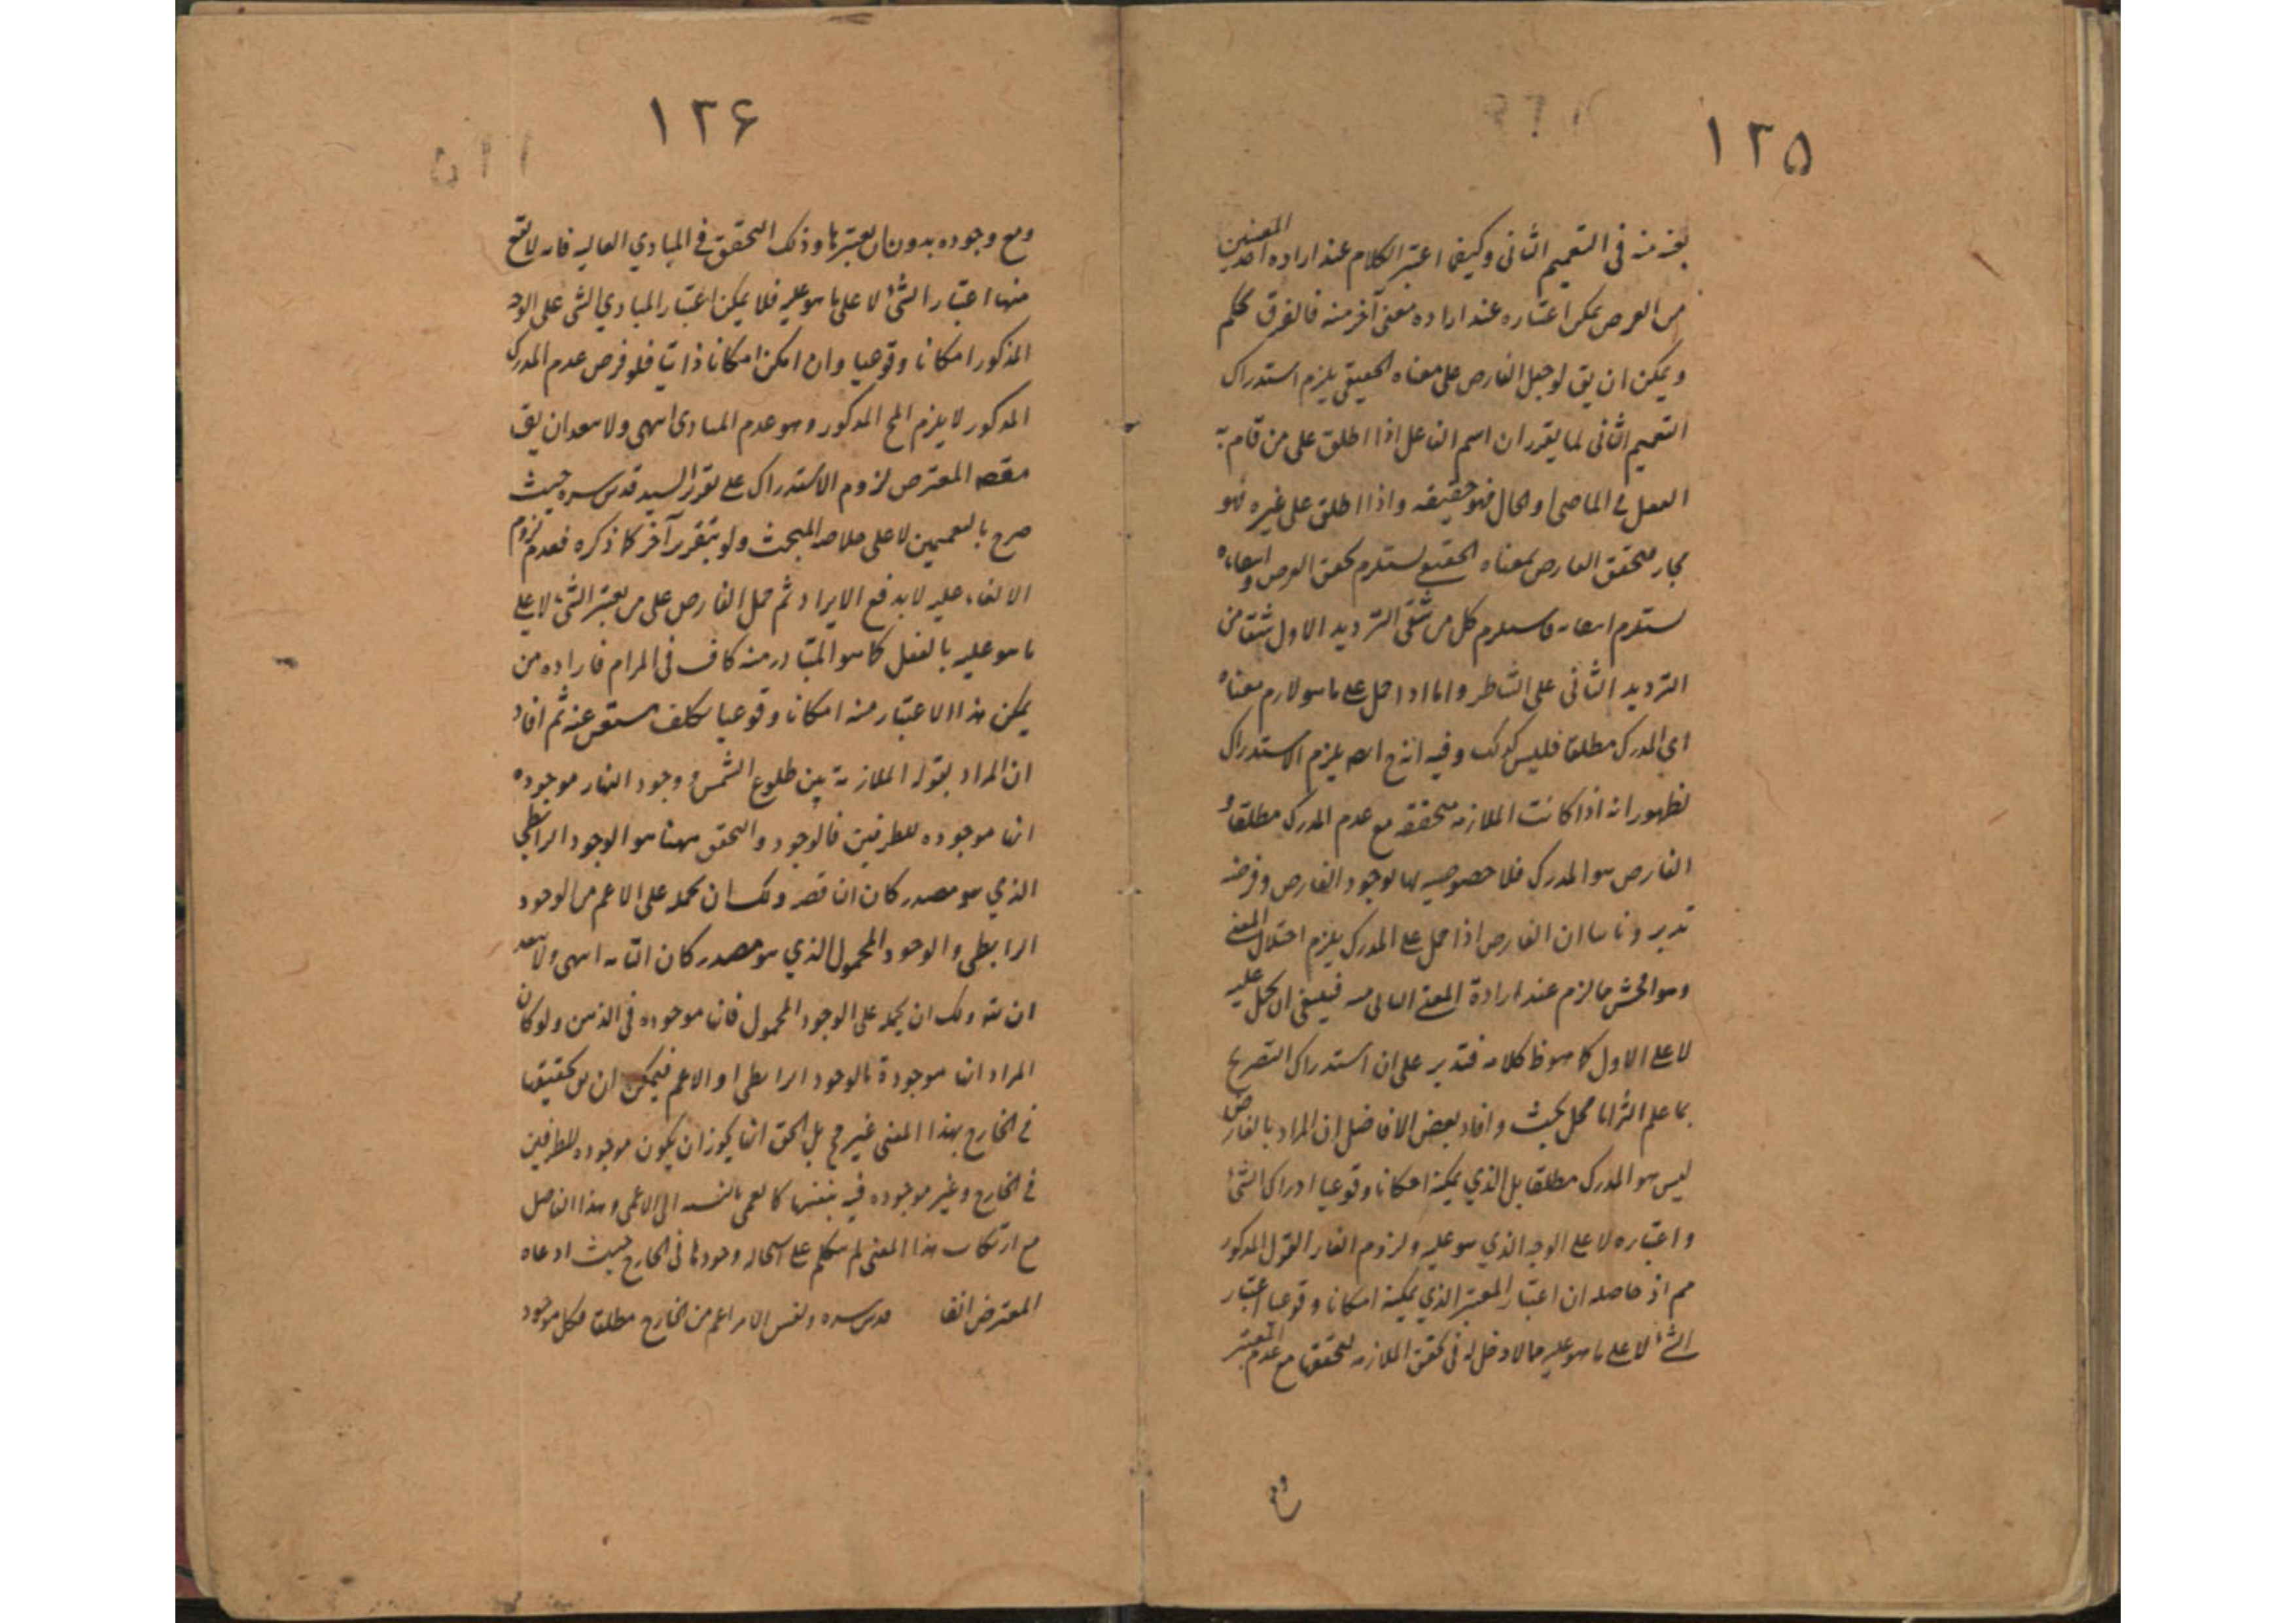 ١٢٥
يفهم منه فى التعميم الثانى وكيفما اعتبر الكلام عند اراده احد المعنيين
من الفرض يمكن اعتباره عند اراده معنى آخر منه فالفرق تحكم
ويمكن ان يق لو حمل الفارض على معناه الحقيقى يلزم استدراك
التعميم الثانى لما يقرر ان اسم الفاعل اذا اطلق على من قام به
الفعل فى الماضى او الحال فهو حقيقه واذا اطلق على غيره فهو
مجاز فتحقق الفارض بمعناه الحقيقى يستلزم تحقق الفرض وانتفاءه
يستلزم انتفاءه فاستلزم كل من شقى الترديد الاول شقا من
الترديد الثانى على الشاطر واما اذا حمل على ما هو لازم معناه
اى المدرك مطلقا فليس كذلك وفيه انه ح ايضا يلزم الاستدراك
لظهور انه اذا كانت الملازمه متحققه مع عدم المدرك مطلقا و
الفارض هو المدرك فلا خصوصيه لها بوجود الفارض وفرضه
تدبر وثانيا ان الفارض اذا حمل على المدرك يلزم اختلال المعنى
وهو افحش مما لزم عند ارادة المعنى الثانى منه فينبغى ان يحمل عليه
لا على الاول كما هو ظ كلامه فتدبر على ان استدراك التصريح
بما علم التزاما محل بحث وافاد بعض الافاضل ان المراد بالفارض
ليس هو المدرك مطلقا بل الذي يمكنه امكانا وقوعيا ادراك الشئ
واعتباره لا على الوجه الذي هو عليه ولزوم القول المذكور
مم اذ حاصله ان اعتبار المعتبر الذي يمكنه امكانا وقوعيا اعتبار
الشئ لا على ما هو عليه مما لا دخل له فى تحقق الملازمه لتحققها مع عدم المعتبر
١٢۶
ومع وجوده بدون ان يعتبرها وذلك التحقق فى المبادي العاليه فانه لا يقع
منها اعتبار الشئ لا على ما هو عليه فلا يمكن اعتبار المبادي الشى على الوجه
المذكور امكانا وقوعيا وان امكن امكانا ذاتيا فلو فرض عدم المدرك
المذكور لا يلزم المح المذكور وهو عدم المبادى انتهى ولا يبعد ان يق
مقصد المعترض لزوم الاستدراك على تقرير السيد قدس سره حيث
صرح بالتعميمين لا على خلاصه المبحث ولو بتقرير آخر كما ذكره فعدم لزوم
الالغاء عليه لا يدفع الايراد ثم حمل الفارض على من يعتبر الشئ لا على
ما هو عليه بالفعل كما هو المتبادر منه كاف فى المرام فاراده من
يمكن هذا الاعتبار منه امكانا وقوعيا تكلف مستغنى عنه ثم افاد
ان المراد بقوله الملازمة بين طلوع الشمس و وجود النهار موجوده
انها موجوده للطرفين فالوجود والتحقق ههنا هو الوجود الرابطي
الذي هو مصدر كان الناقصه ولك ان تحمله على الاعم من الوجود
الرابطى والوجود المحمول الذي هو مصدر كان التامه انتهى ولا يبعد
ان يقه ولك ان يحمله على الوجود المحمول فانها موجوده فى الذهن ولو كان
المراد انها موجودة بالوجود الرابطى او الاعم فيمكن ان يق تحققها
فى الخارج بهذا المعنى غير مح بل الحق انها يجوز ان يكون موجوده للطرفين
فى الخارج وغير موجوده فيه بنفسها كالعمى بالنسبه الى الاعمى وهذا الفاضل
مع ارتكاب هذا المعنى لم يتكلم على استحاله وجودها فى الخارج حيث ادعاه
المعترض انفا قدس سره ونفس الامر اعم من الخارج مطلقا فكل موجود